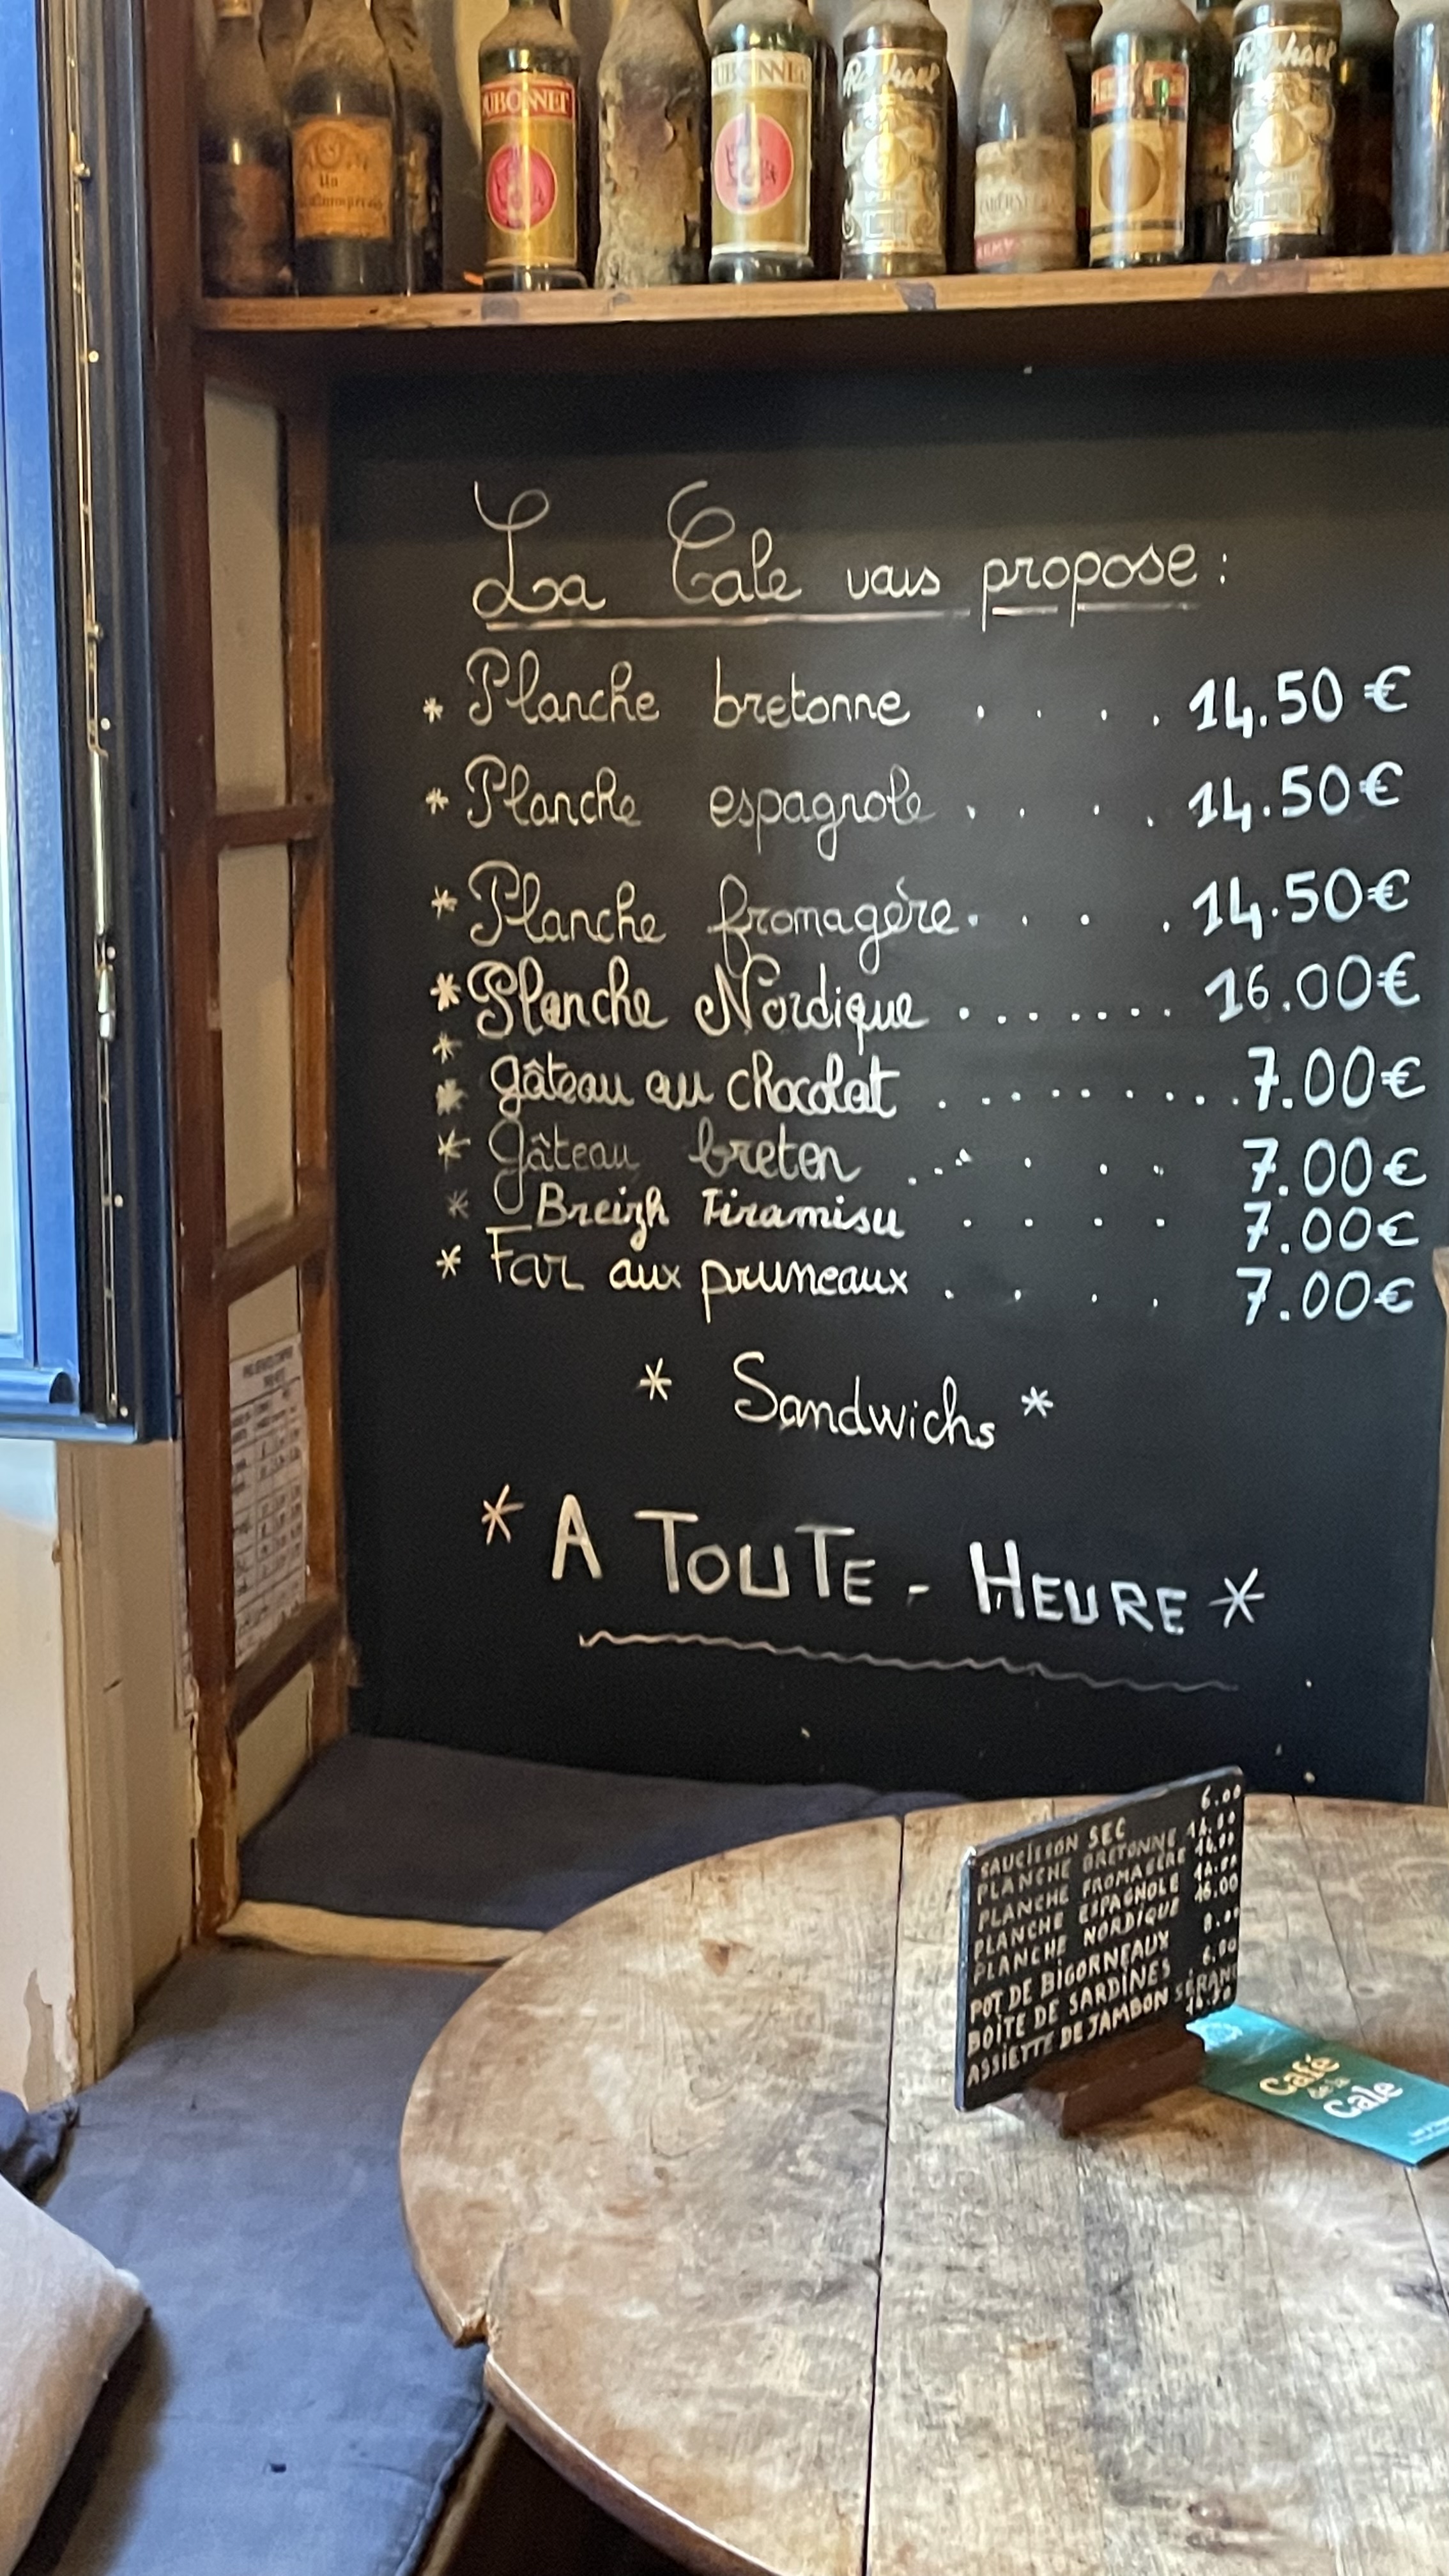 DUBONNET
UBONNET
Raphaël
Raphaël
La Cale vous propose :
* Planche bretonne . . . . 14.50 €
* Planche espagnole . . . . 14.50€
* Planche fromagère. . . . 14.50€
* Planche Nordique . . . . . . . 16.00€
* gâteau au chocolat . . . . . . . . . 7.00€
* Gâteau breton . . . . . . 7.00€
* Breizh Tiramisu . . . . 7.00€
* Far aux pruneaux . . . . 7.00€
* Sandwichs *
* A TOUTE - HEURE *
SAUCISSON SEC 6.00
PLANCHE BRETONNE
PLANCHE FROMAGÈRE
PLANCHE ESPAGNOLE
PLANCHE NORDIQUE 16.00
POT DE BIGORNEAUX
BOÎTE DE SARDINES 6.00
ASSIETTE DE JAMBON SERANO
Café
de la
Cale